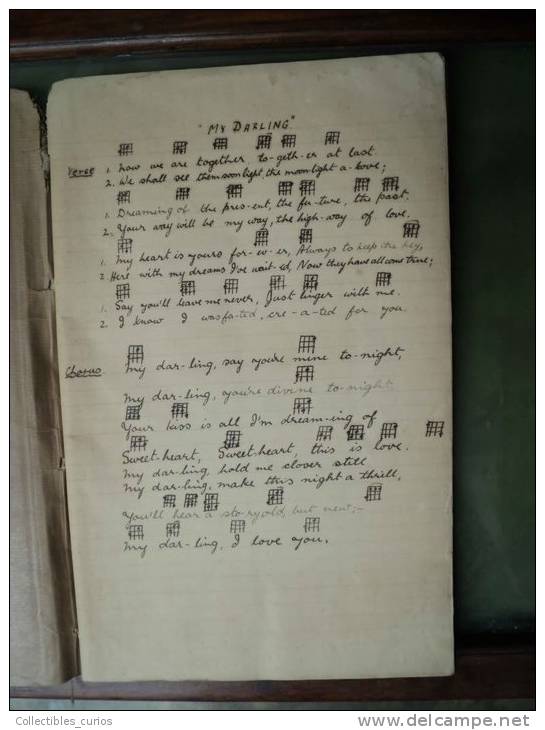 "MY DARLING"
Verse 1. Now we are together, to-geth-er at last.
2. We shall see the moonlight, the moonlight a-bove;
1. Dreaming of the pres-ent, the fu-ture, the past.
2. Your way will be my way, the high-way of love.
1. My heart is yours for-ev-er, Always to keep the key,
2. Here with my dreams I've wait-ed, Now they have all come true;
1. Say you'll leave me never, Just linger with me.
2. I know I was fa-ted, cre-a-ted for you.
Chorus. My dar-ling, say you're mine to-night,
My dar-ling, you're divine to-night
Your kiss is all I'm dream-ing of
Sweet-heart, Sweet-heart, this is love.
My dar-ling, hold me closer still
My dar-ling, make this night a thrill,
You'll hear a sto-ry old, but new;-
My dar-ling, I love you.
Collectibles_curios
www.delcampe.net